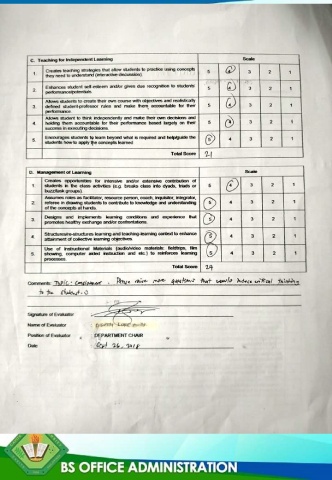 C. Teaching for Independent Learning Scale
1. Creates teaching strategies that allow students to practice using concepts they need to understand (interactive discussion) 5 4 3 2 1
2. Enhances student self-esteem and/or gives due recognition to students' performance/potentials 5 4 3 2 1
3. Allows students to create their own course with objectives and realistically defined student-professor rules and make them accountable for their performance 5 4 3 2 1
4. Allows student to think independently and make their own decisions and holding them accountable for their performance based largely on their success in executing decisions. 5 4 3 2 1
5. Encourages students to learn beyond what is required and help/guide the students how to apply the concepts learned 5 4 3 2 1
Total Score 21
D. Management of Learning Scale
1. Creates opportunities for intensive and/or extensive contribution of students in the class activities (e.g. breaks class into dyads, triads or buzz/task groups) 5 4 3 2 1
2. Assumes roles as facilitator, resource person, coach, inquisitor, integrator, referee in drawing students to contribute to knowledge and understanding of the concepts at hands. 5 4 3 2 1
3. Designs and implements learning conditions and experience that promotes healthy exchange and/or confrontations. 5 4 3 2 1
4. Structures/re-structures learning and teaching-learning context to enhance attainment of collective learning objectives. 5 4 3 2 1
5. Use of Instructional Materials (audio/video materials: fieldtrips, film showing, computer aided instruction and etc.) to reinforces learning processes. 5 4 3 2 1
Total Score 24
Comments: Topic: Employment. Please raise more questions that would induce critical thinking
to the students.
Signature of Evaluator :
Name of Evaluator :
Position of Evaluator : DEPARTMENT CHAIR
Date : Sept 26, 2018
BS OFFICE ADMINISTRATION